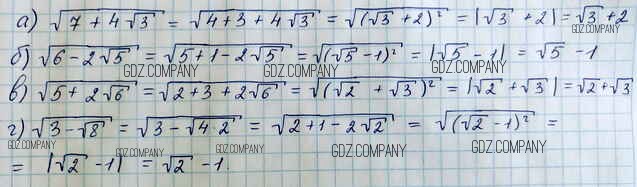 а) √(7 + 4√3) = √(4+3+4√3) = √((√3 +2)²) = |√3 +2| = √3 +2
б) √(6-2√5) = √(5+1-2√5) = √((√5 -1)²) = |√5 -1| = √5 -1
GDZ.COMPANY GDZ.COMPANY GDZ.COMPANY GDZ.COMPANY
в) √(5+2√6) = √(2+3+2√6) = √((√2 +√3)²) = |√2 +√3| = √2+√3
г) √(3-√8) = √(3-√(4·2)) = √(2+1-2√2) = √((√2 -1)²) =
GDZ.COMPANY GDZ.COMPANY GDZ.COMPANY GDZ.COMPANY GDZ.COMPANY
= |√2 -1| = √2 -1.